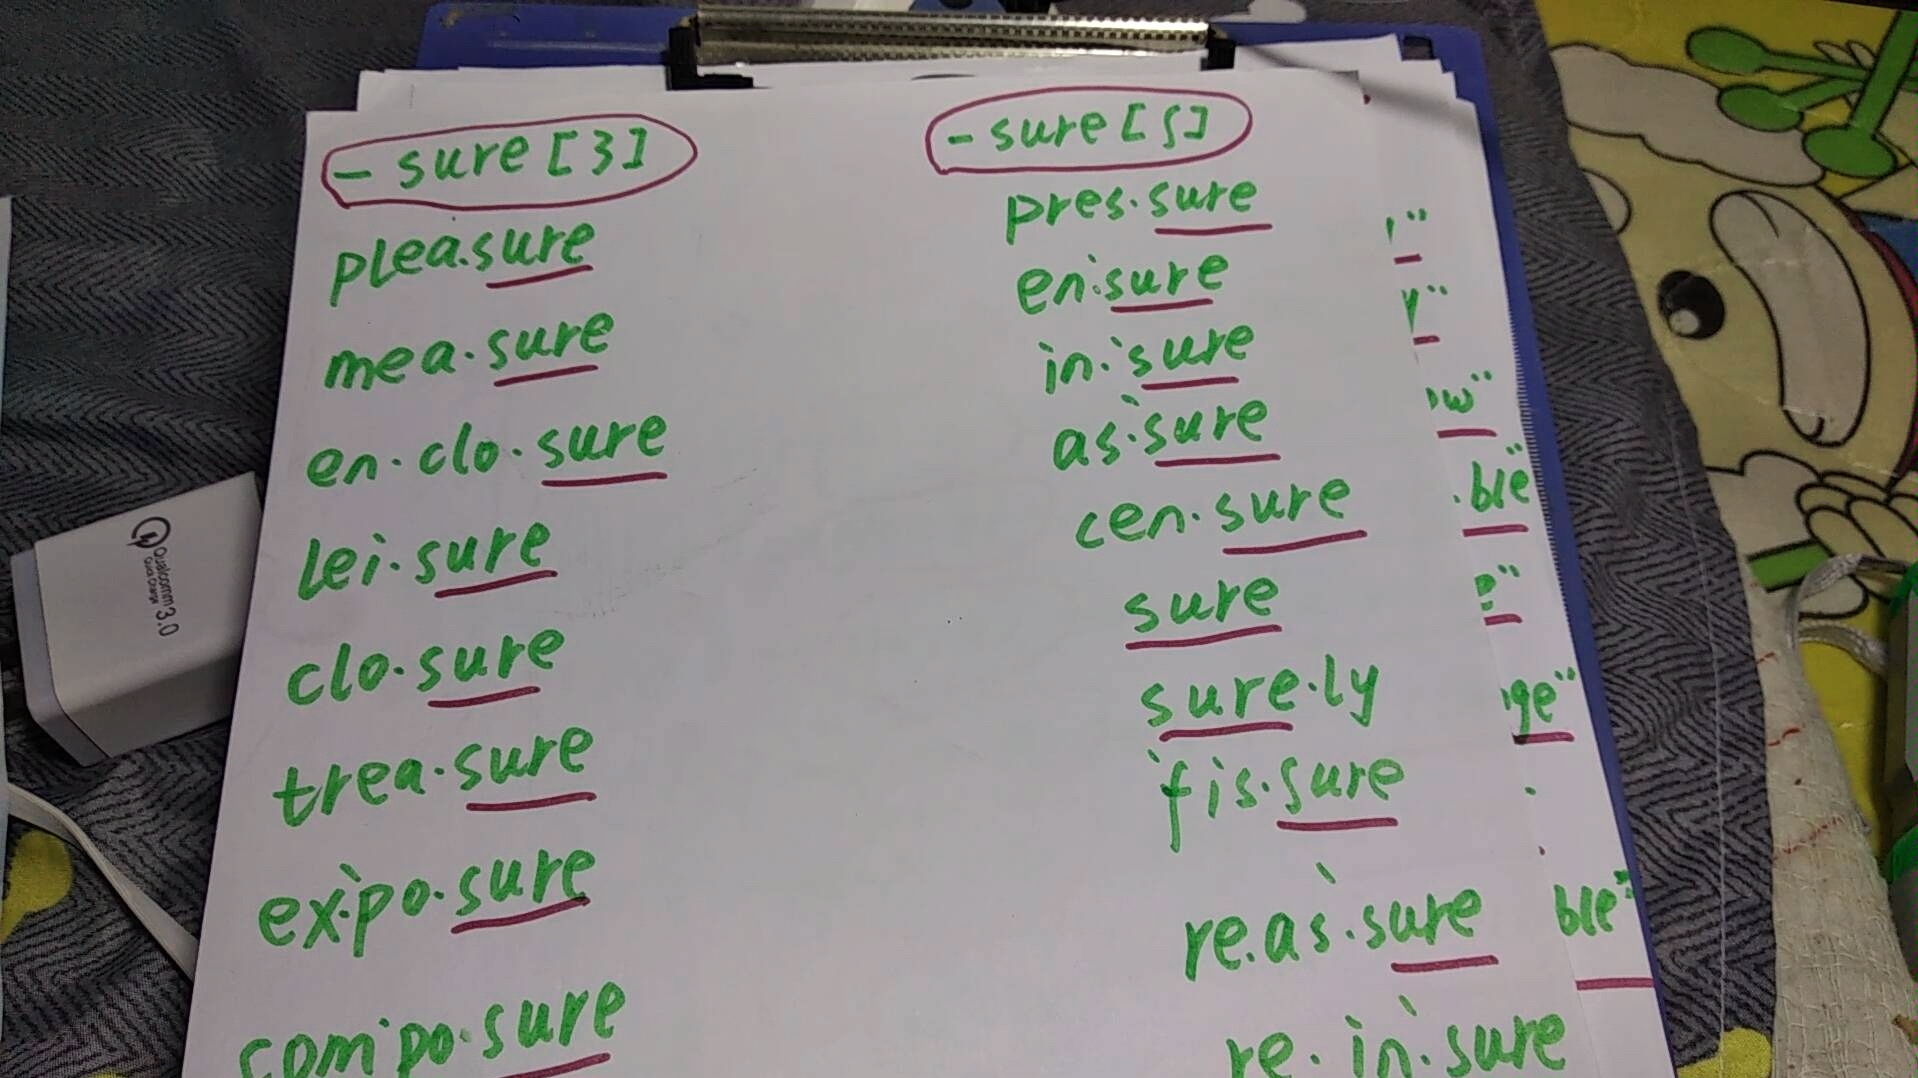 - sure [ʒ]
plea.sure
mea.sure
en.clo.sure
lei.sure
clo.sure
trea.sure
ex.'po.sure
com'po.sure
- sure [ʃ]
pres.sure
en.'sure
in.'sure
as.'sure
cen.sure
sure
sure.ly
'fis.sure
re.as.'sure
re.in.'sure
r"
y"
ow"
.ble"
e"
ge"
ble"
Qualcomm
Quick Charge
3.0